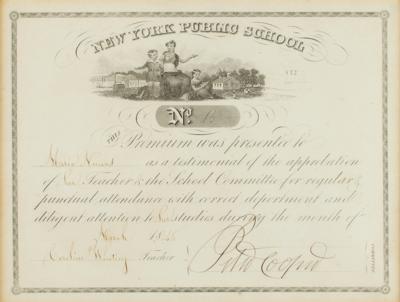 NEW YORK PUBLIC SCHOOL
No.
THIS
Premium was presented to
Maria as a testimonial of the approbation
of her Teacher & the School Committee for regular &
punctual attendance with correct deportment and
diligent attention to her studies during the month of
March 18
Caroline Whiting Teacher
Peter Cooper